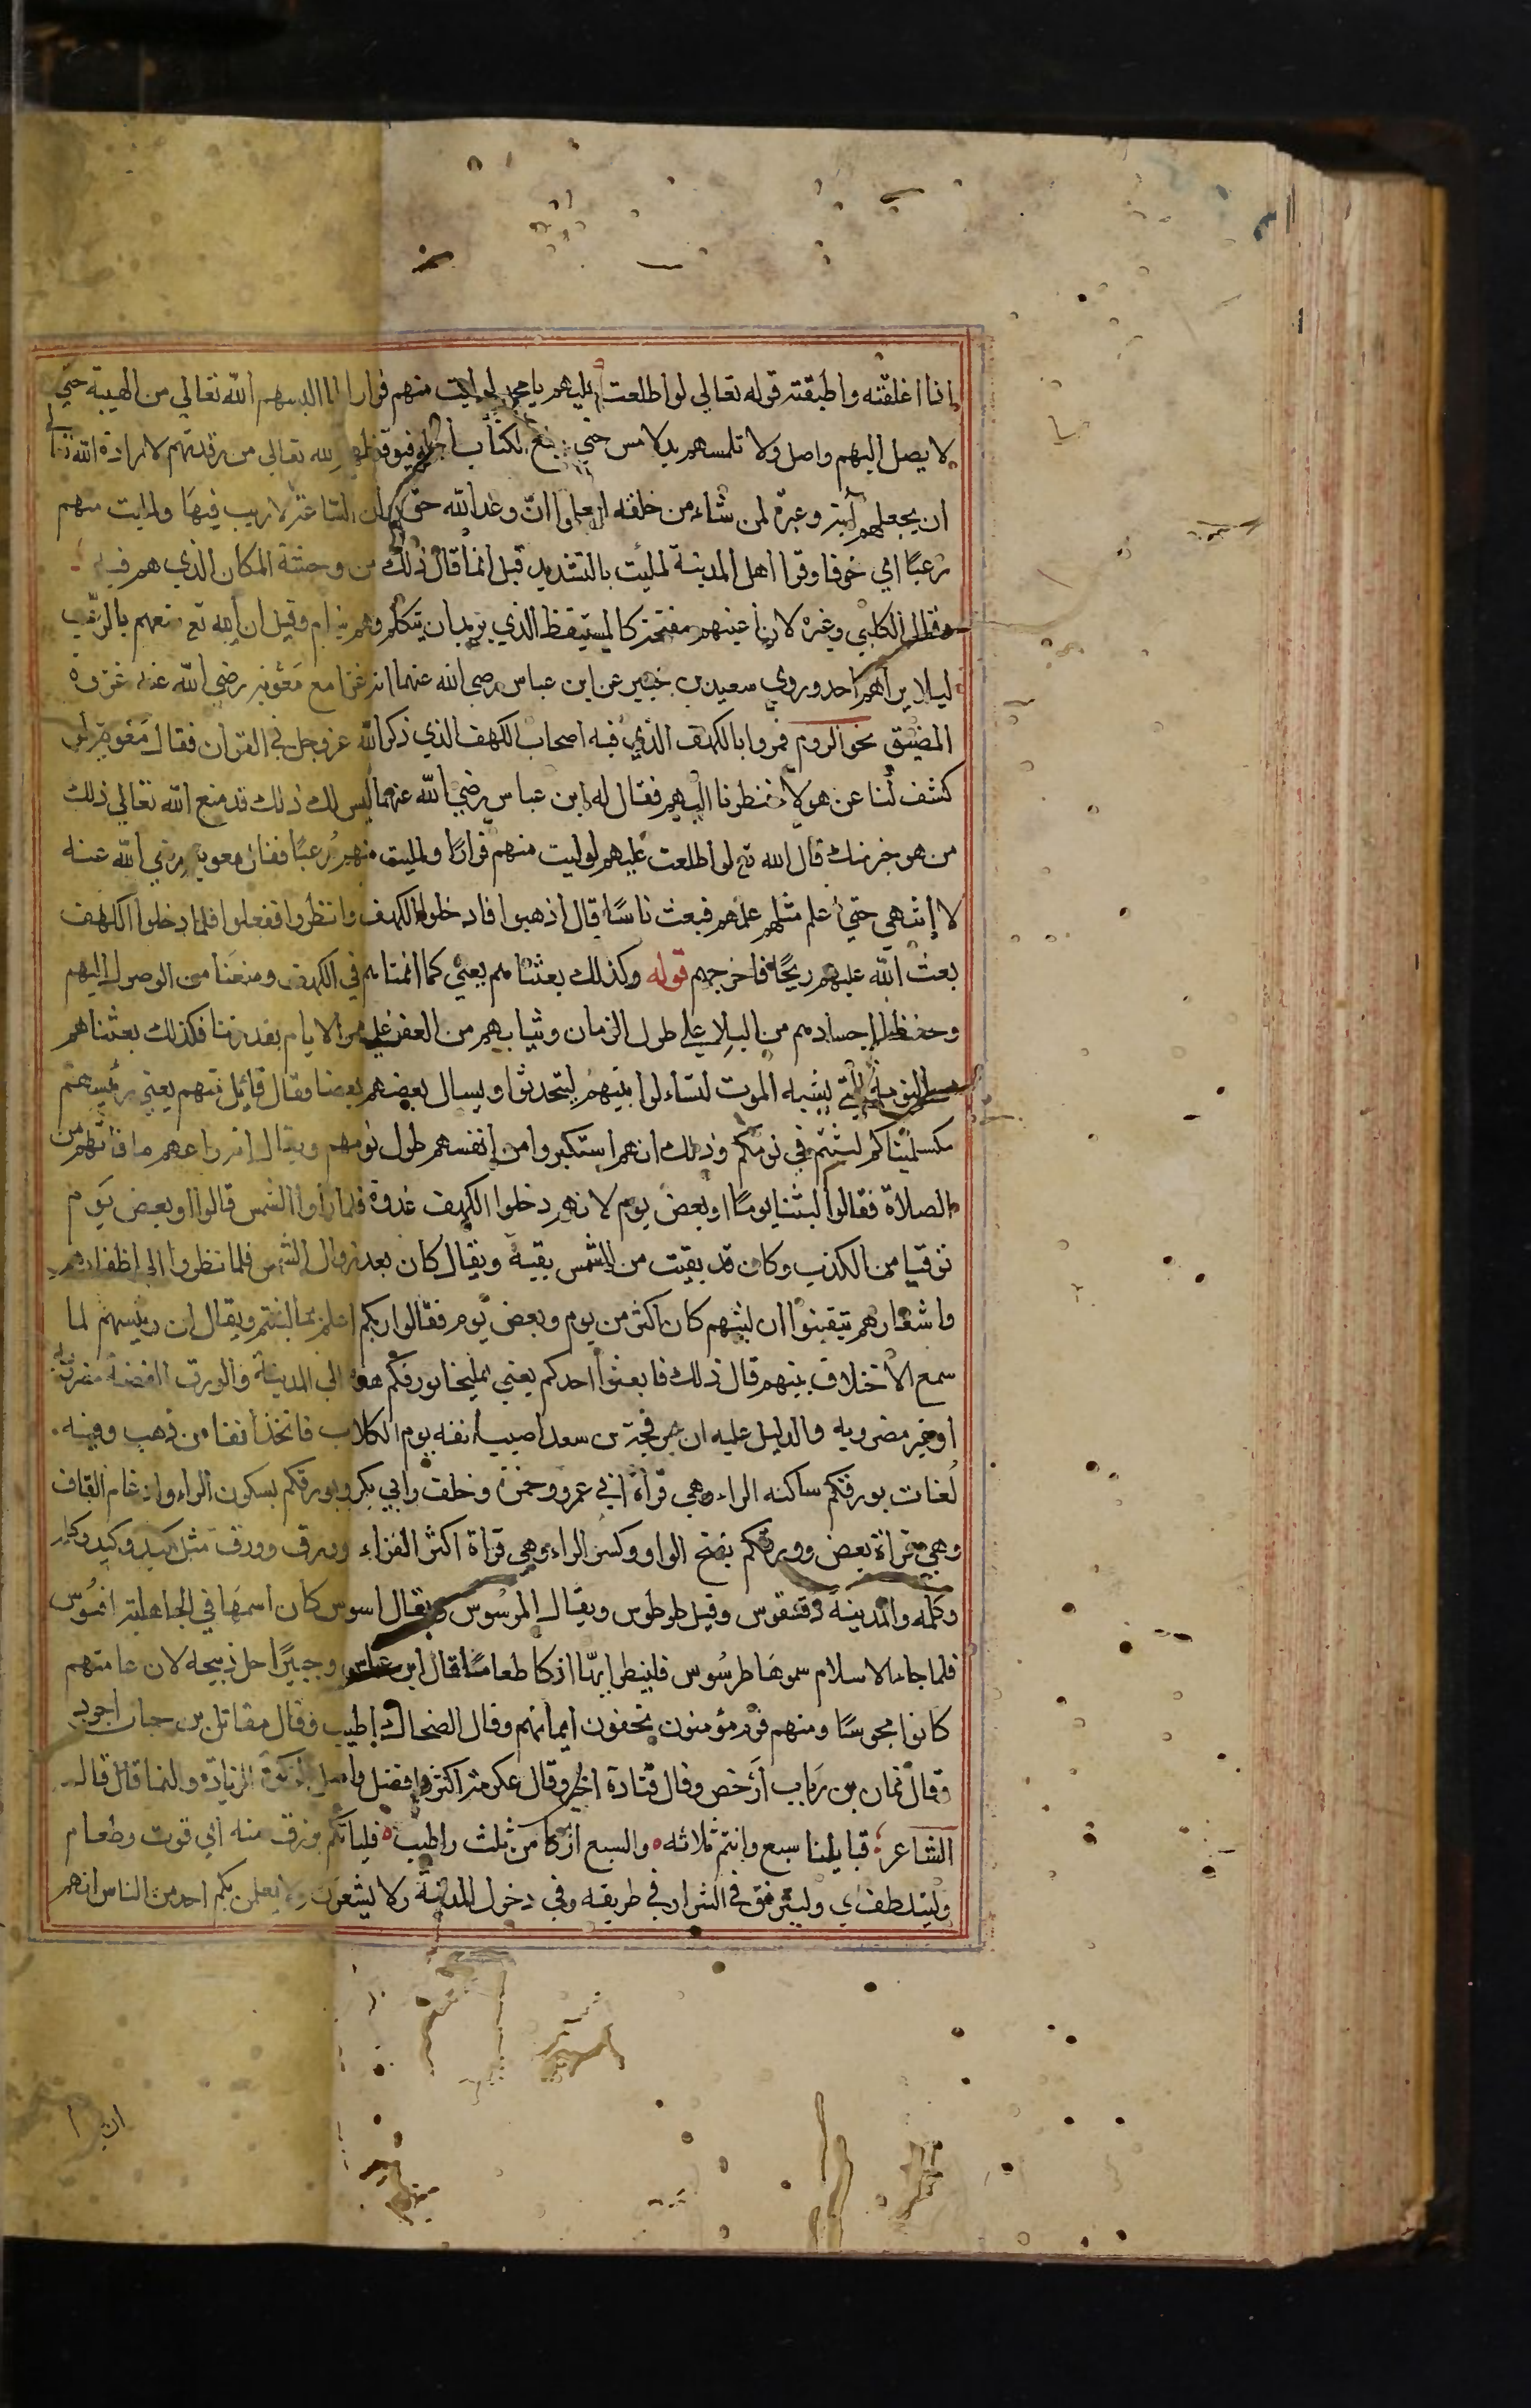 اذا اغلقته واطبقته قوله تعالى لو اطلعت عليهم يا محمد لوليت منهم فرارا لما البسهم الله تعالي من الهيبة حتي
لا يصل اليهم واصل ولا تلمسهم يد لامس حتي يبلغ الكتاب اجله فيوقظهم الله تعالى من رقدتهم لارادة الله تعالى
ان يجعلهم آية وعبرة لمن شاء من خلقه ليعلموا ان وعد الله حق وان الساعة لا ريب فيها ولملئت منهم
رعبا اي خوفا وقرا اهل المدينة لملئت بالتشديد قيل انما قال ذلك من وحشة المكان الذي هم فيه
فقال الكلبي وغيره لان اعينهم مفتحة كالمستيقظ الذي يريد ان يتكلم وهم نيام وقيل ان الله تع منعهم بالرعب
ليلا يراهم احد وروي سعيد بن جبير عن ابن عباس رضي الله عنهما انه غزا مع معوية رضي الله عنه غزوة
المضيق نحو الروم فمروا بالكهف الذي فيه اصحاب الكهف الذي ذكر الله عز وجل في القران فقال معوية لو
كشف لنا عن هولا فنظرنا اليهم فقال له ابن عباس رضي الله عنهما ليس لك ذلك قد منع الله تعالي ذلك
من هو خير منك قال الله تع لو اطلعت عليهم لوليت منهم فرارا ولمليت منهم رعبا فقال معوية رضي الله عنه
لا انتهي حتي اعلم علمهم فبعث ناسا قال اذهبوا فادخلوا الكهف وانظروا ففعلوا فلما دخلوا الكهف
بعث الله عليهم ريحا فاخرجهم قوله وكذلك بعثناهم يعني كما انمناهم في الكهف ومنعنا من الوصول اليهم
وحفظنا اجسادهم من البلاء علي طول الزمان وثيابهم من العفن علي مر الايام بقدرتنا فكذلك بعثناهم
من النومة التي يشبه الموت لتساءلوا بينهم ليتحدثوا ويسال بعضهم بعضا فقال قائل منهم يعني رئيسهم
مكسلمينا كم لبثتم في نومكم وذلك انهم استكبروا من انفسهم طول نومهم ويقال انه راعهم ما فاتهم من
الصلاة فقالوا لبثنا يوما او بعض يوم لانهم دخلوا الكهف غدوة فلما راوا الشمس قالوا او بعض يوم
توقيا من الكذب وكان قد بقيت من الشمس بقية ويقال كان بعد زوال الشمس فلما نظروا الى اظفارهم
واشعارهم تيقنوا ان لبثهم كان اكثر من يوم وبعض يوم فقالوا ربكم اعلم بما لبثتم ويقال ان رييسهم لما
سمع الاختلاف بينهم قال ذلك فابعثوا احدكم يعني يمليخا بورقكم هذه الى المدينة والورق الفضة مضروبة
او غير مضروبه والدليل عليه ان عرفجة بن سعد اصيب انفه يوم الكلاب فاتخذ انفا من ذهب وفيه
لغات بورقكم ساكنه الراء وهي قراة ابي عمرو وحمزة وخلف وابي بكر وبورقكم بسكون الراء وادغام القاف
وهي قراة بعض وورقكم بفتح الواو وكسر الراء وهي قراة اكثر القراء وورق وورق مثل كبد وكبد وكلم
وكلمه والمدينة دقنقوس وقيل طوطوس ويقال افسوس كان اسمها في الجاهلية افسوس
فلما جاء الاسلام سموها طرسوس فلينظر ايها ازكا طعاما قال ابن عباس وجبير احل ذبيحة لان عامتهم
كانوا مجوسا ومنهم قوم مؤمنون يخفون ايمانهم وقال الضحاك اطيب وقال مقاتل بن حيان اجود
وقال نمان بن رباب ارخص وقال قتادة اخير وقال عكرمة اكثر وافضل واصل الزكوة الزيادة والنما قال قال
الشاعر قبايلنا سبع وانتم ثلاثه والسبع ازكا من ثلث واطيب فلياتكم برزق منه اي قوت وطعام
وليتلطف اي وليترفق في الشرا وفي طريقه وفي دخول المدينة ولا يشعرن ولا يعلمن بكم احد من الناس انهم